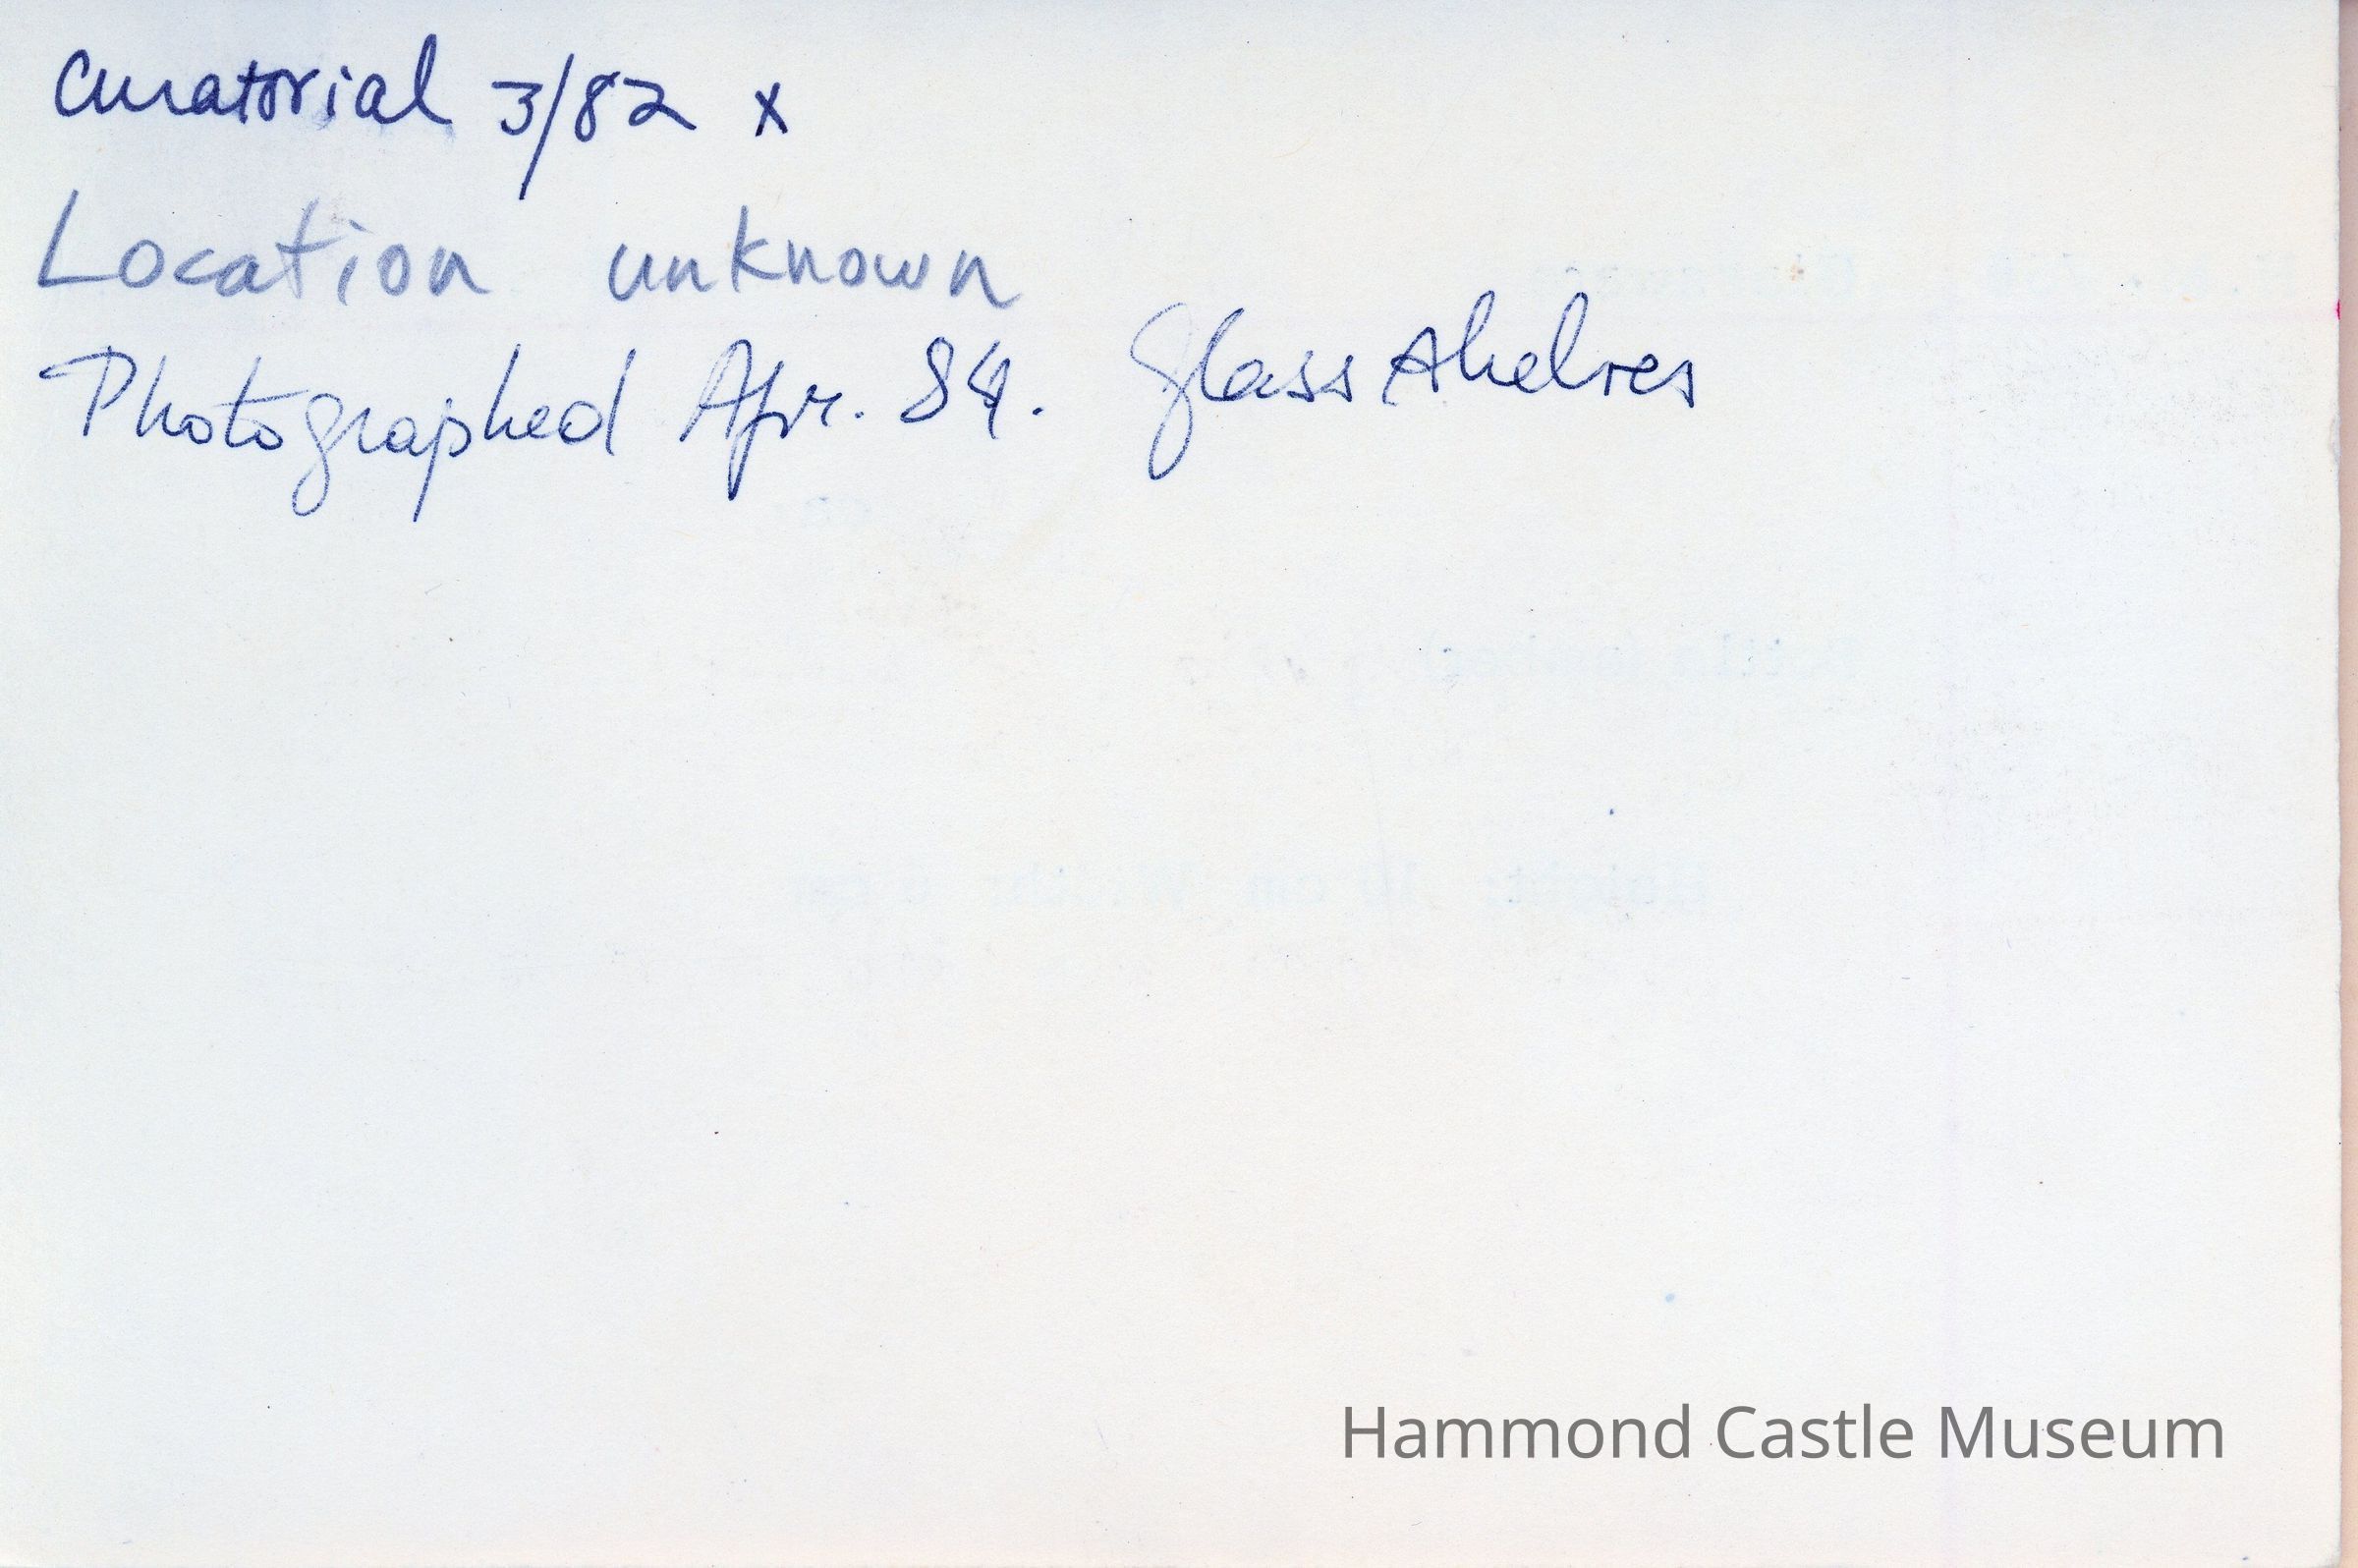 Curatorial 3/82 x
Location unknown
Photographed Apr. 84. Glass shelves
Hammond Castle Museum